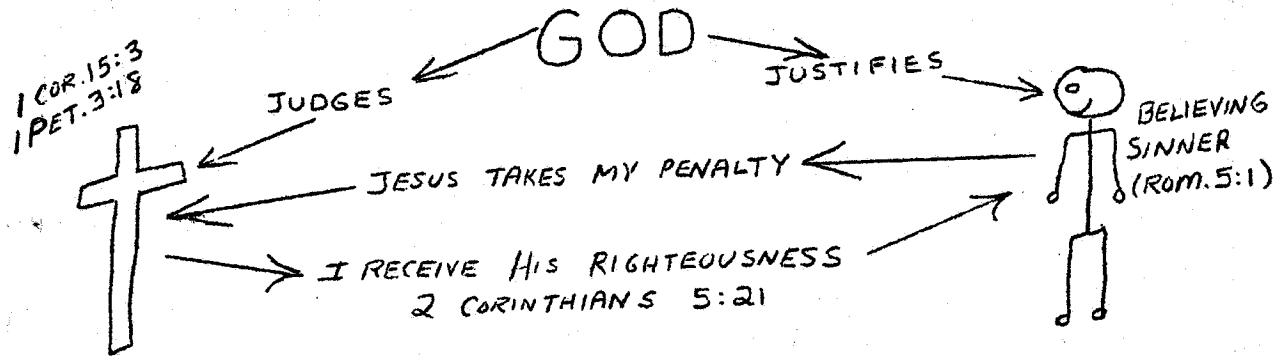 GOD
1 COR. 15:3
1 PET. 3:18
JUDGES
JUSTIFIES
BELIEVING
SINNER
(ROM. 5:1)
JESUS TAKES MY PENALTY
I RECEIVE HIS RIGHTEOUSNESS
2 CORINTHIANS 5:21